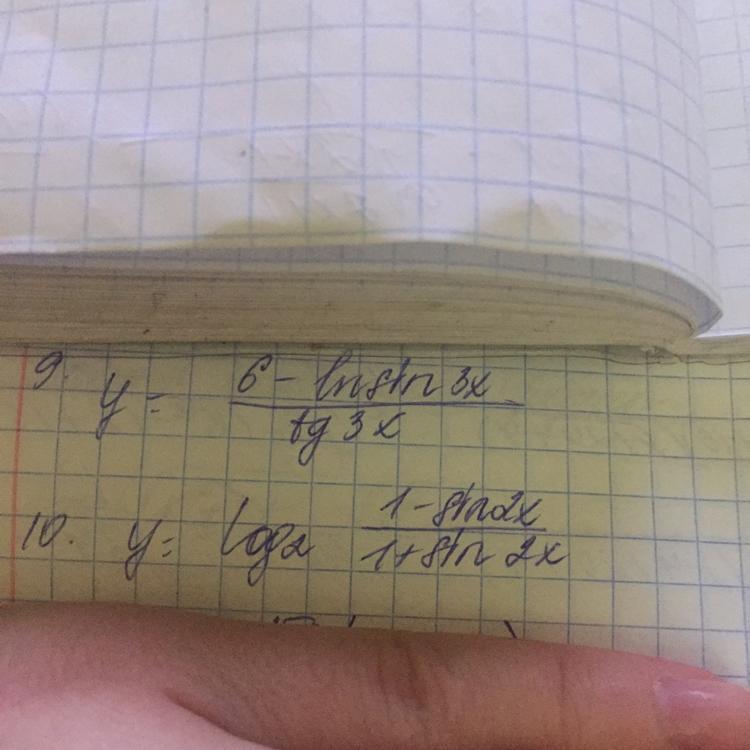 9. y = 6 - ln sin 3x
tg 3x
10. y = log2 1 - sin 2x
1 + sin 2x